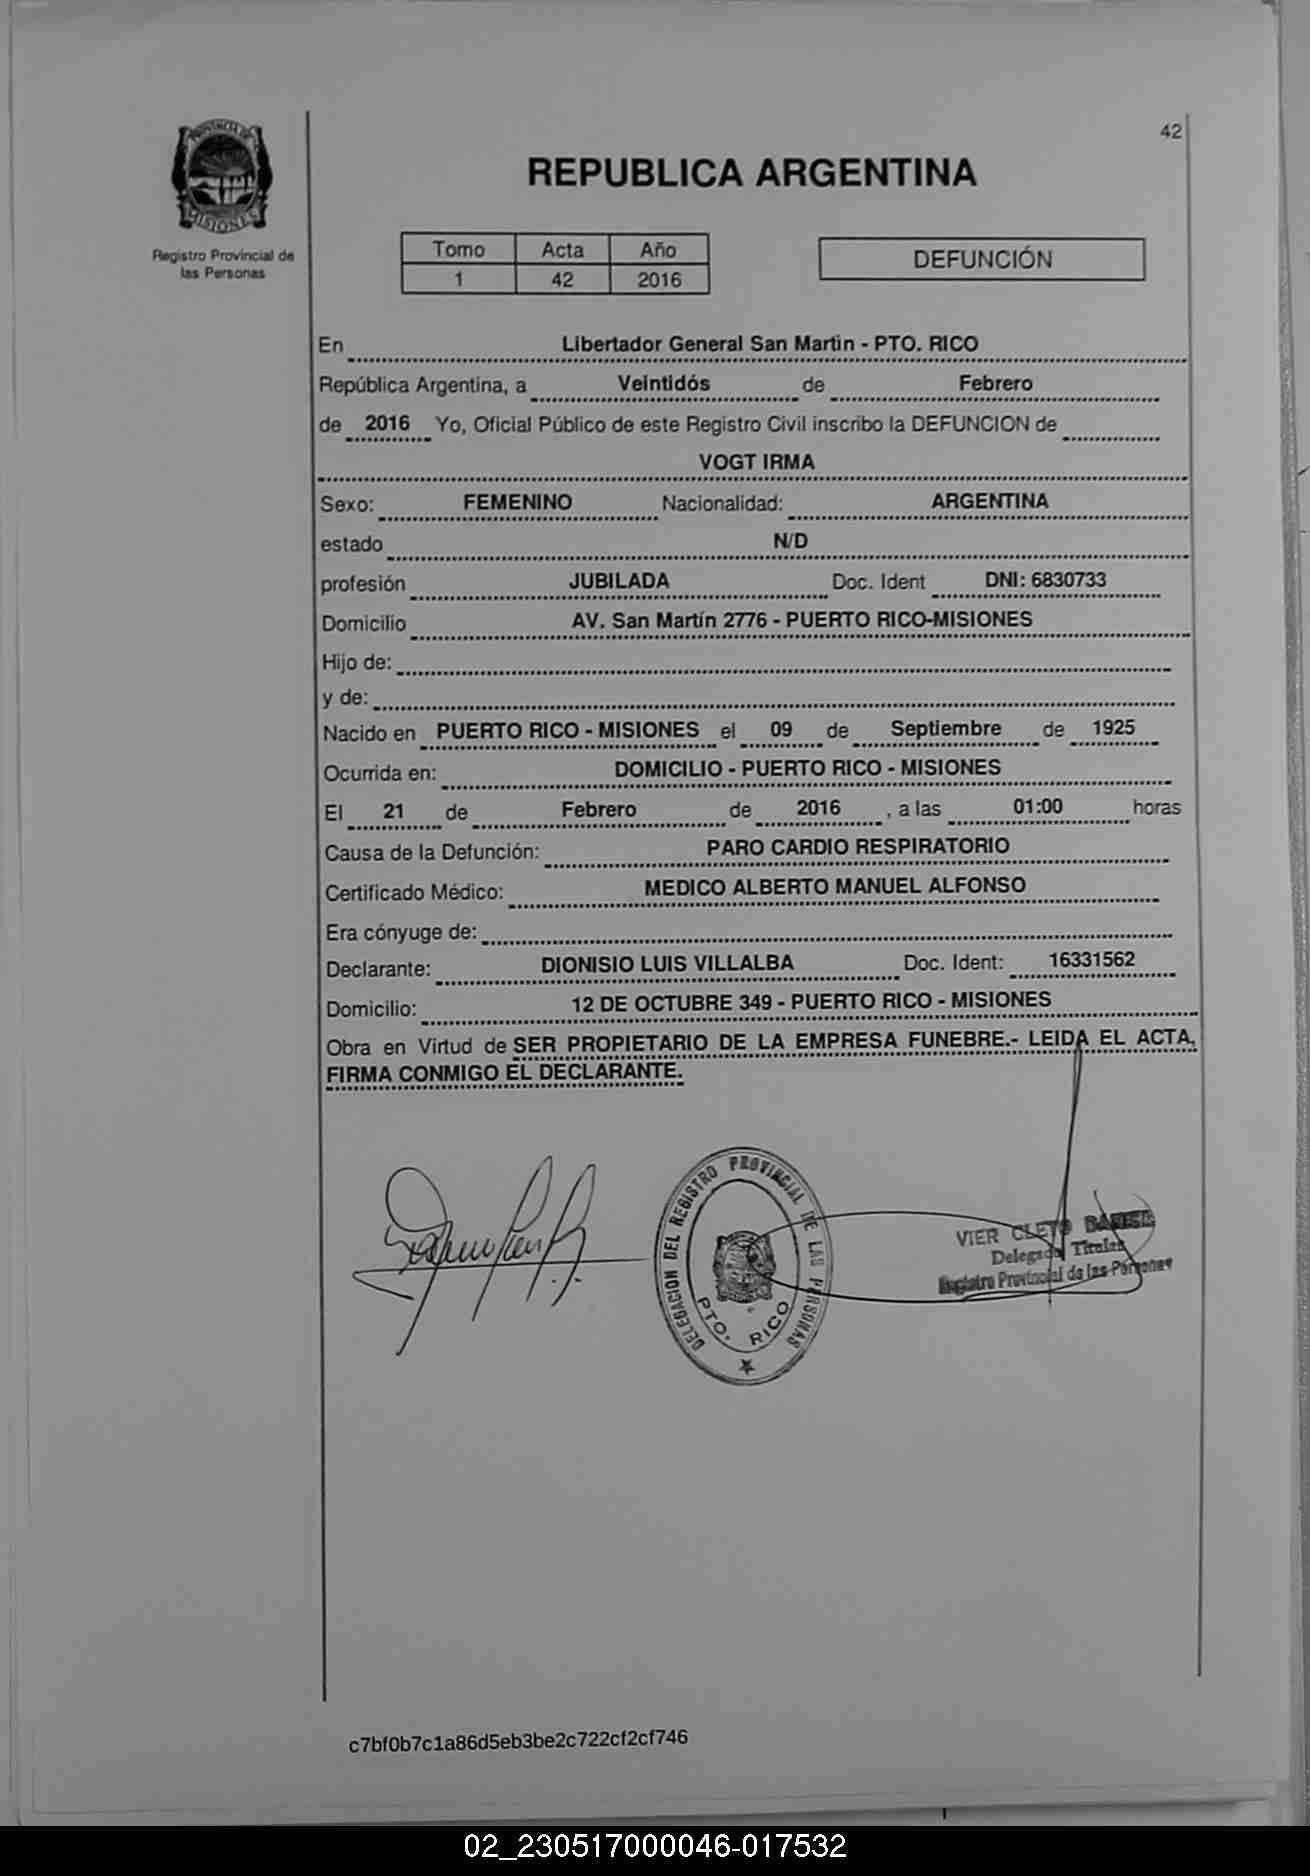 42
PROVINCIA DE
MISIONES
Registro Provincial de
las Personas
REPUBLICA ARGENTINA
Tomo Acta Año
1 42 2016
DEFUNCIÓN
En Libertador General San Martin - PTO. RICO
República Argentina, a Veintidós de Febrero
de 2016 Yo, Oficial Público de este Registro Civil inscribo la DEFUNCION de
VOGT IRMA
Sexo: FEMENINO Nacionalidad: ARGENTINA
estado N/D
profesión JUBILADA Doc. Ident DNI: 6830733
Domicilio AV. San Martín 2776 - PUERTO RICO-MISIONES
Hijo de:
y de:
Nacido en PUERTO RICO - MISIONES el 09 de Septiembre de 1925
Ocurrida en: DOMICILIO - PUERTO RICO - MISIONES
El 21 de Febrero de 2016 , a las 01:00 horas
Causa de la Defunción: PARO CARDIO RESPIRATORIO
Certificado Médico: MEDICO ALBERTO MANUEL ALFONSO
Era cónyuge de:
Declarante: DIONISIO LUIS VILLALBA Doc. Ident: 16331562
Domicilio: 12 DE OCTUBRE 349 - PUERTO RICO - MISIONES
Obra en Virtud de SER PROPIETARIO DE LA EMPRESA FUNEBRE.- LEIDA EL ACTA,
FIRMA CONMIGO EL DECLARANTE.
DELEGACION DEL REGISTRO PROVINCIAL DE LAS PERSONAS
PTO. RICO
VIER CLETO
Delegado Titular
Registro Provincial de las Personas
c7bf0b7c1a86d5eb3be2c722cf2cf746
02_230517000046-017532